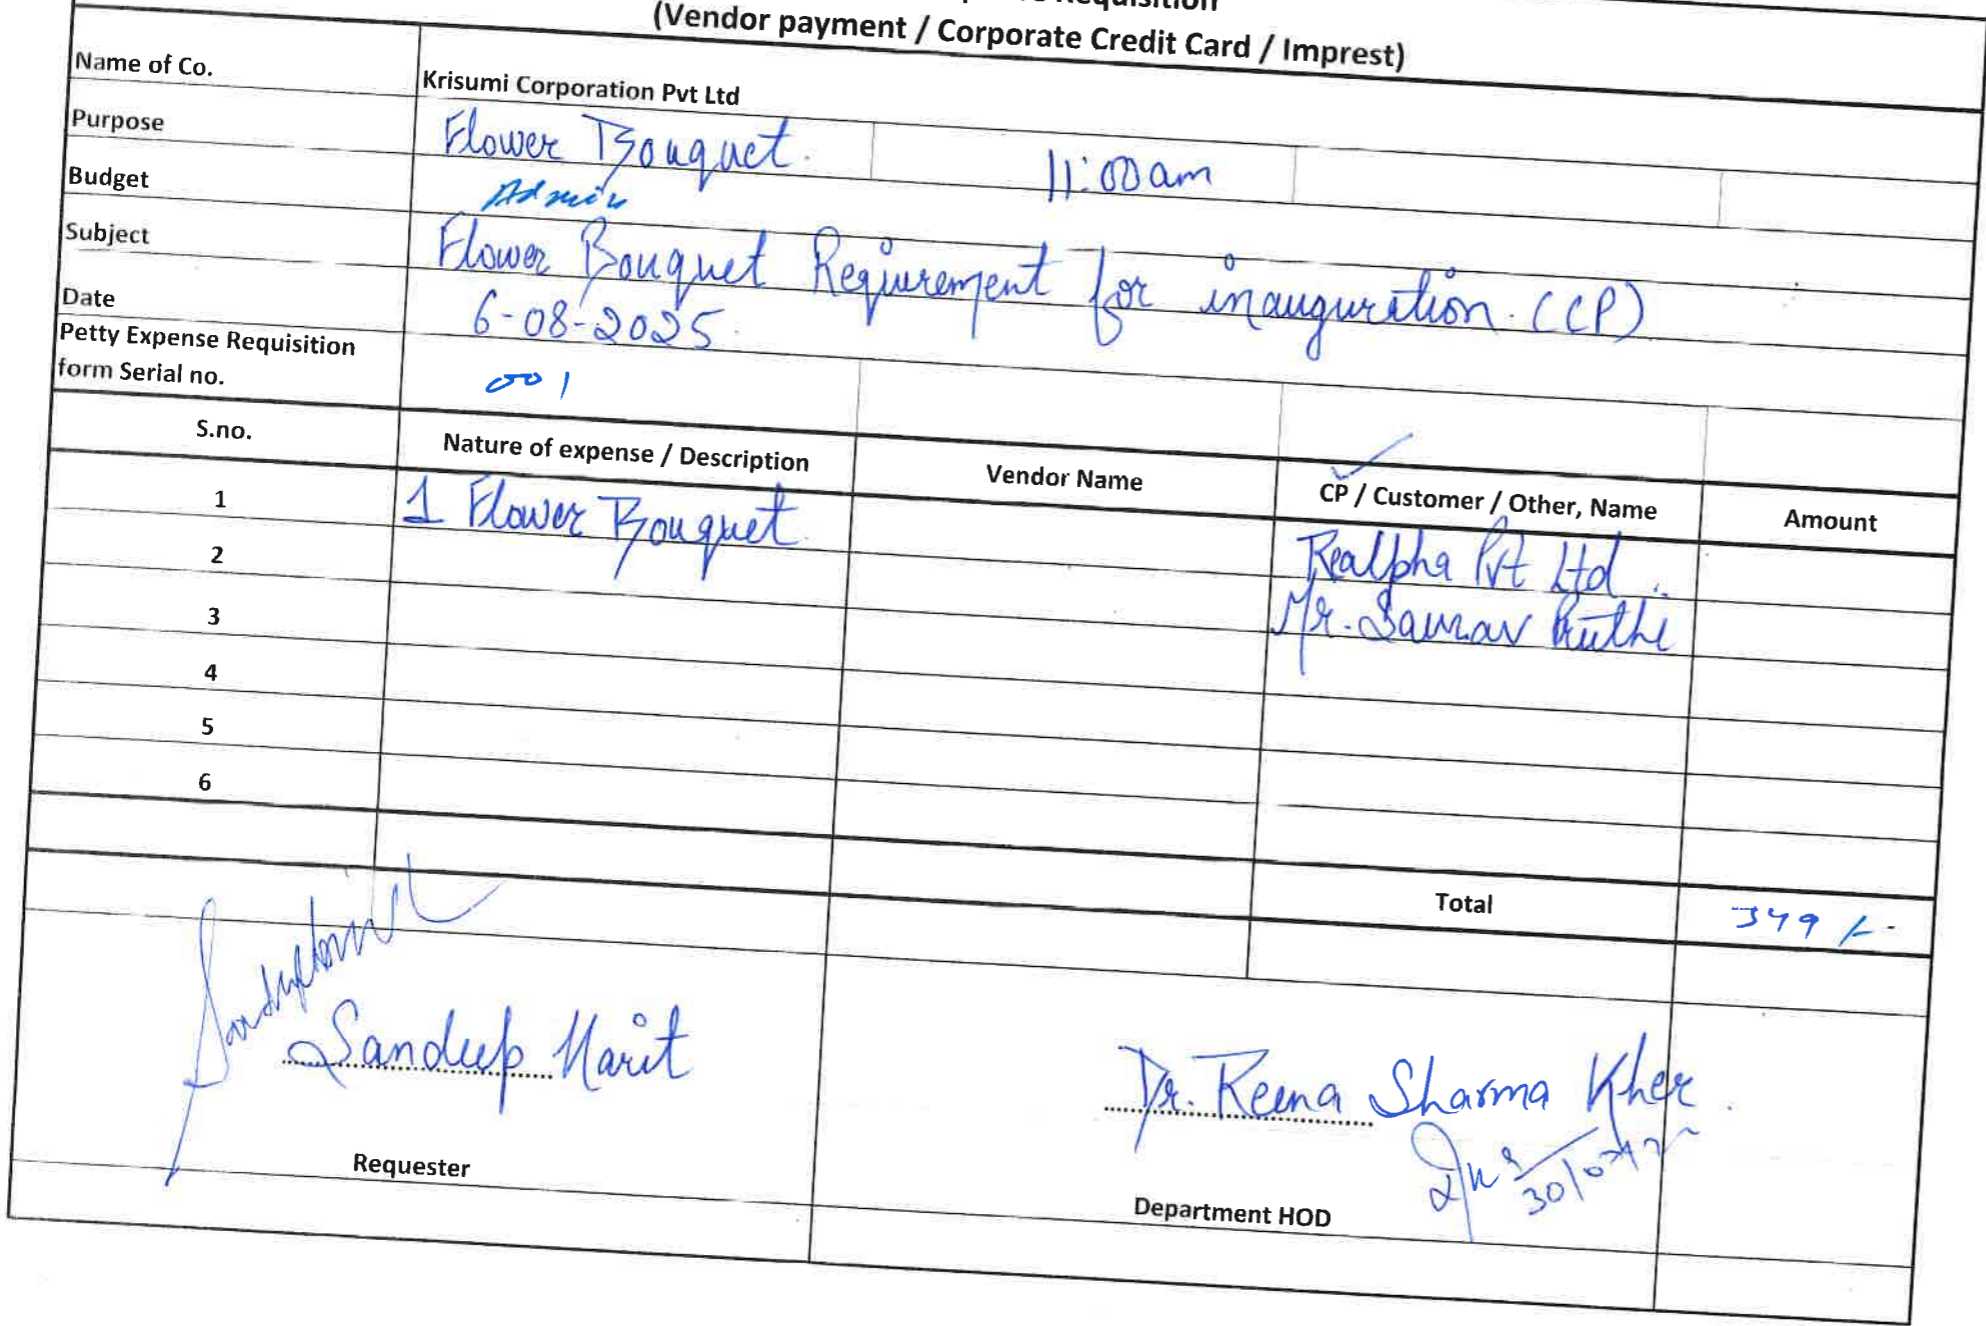 Requisition
(Vendor payment / Corporate Credit Card / Imprest)
Name of Co. Krisumi Corporation Pvt Ltd
Purpose Flower Bouquet. 11:00am
Budget Admin
Subject Flower Bouquet Requirement for inauguration. (CP)
Date 6-08-2025.
Petty Expense Requisition
form Serial no. 001
S.no. Nature of expense / Description Vendor Name CP / Customer / Other, Name Amount
1 1 Flower Bouquet Realpha Pvt Ltd.
2 Mr. Saurav
3
4
5
6
Total 349/-
Sandeep Harit
Dr. Reena Sharma Kher
Requester
Department HOD